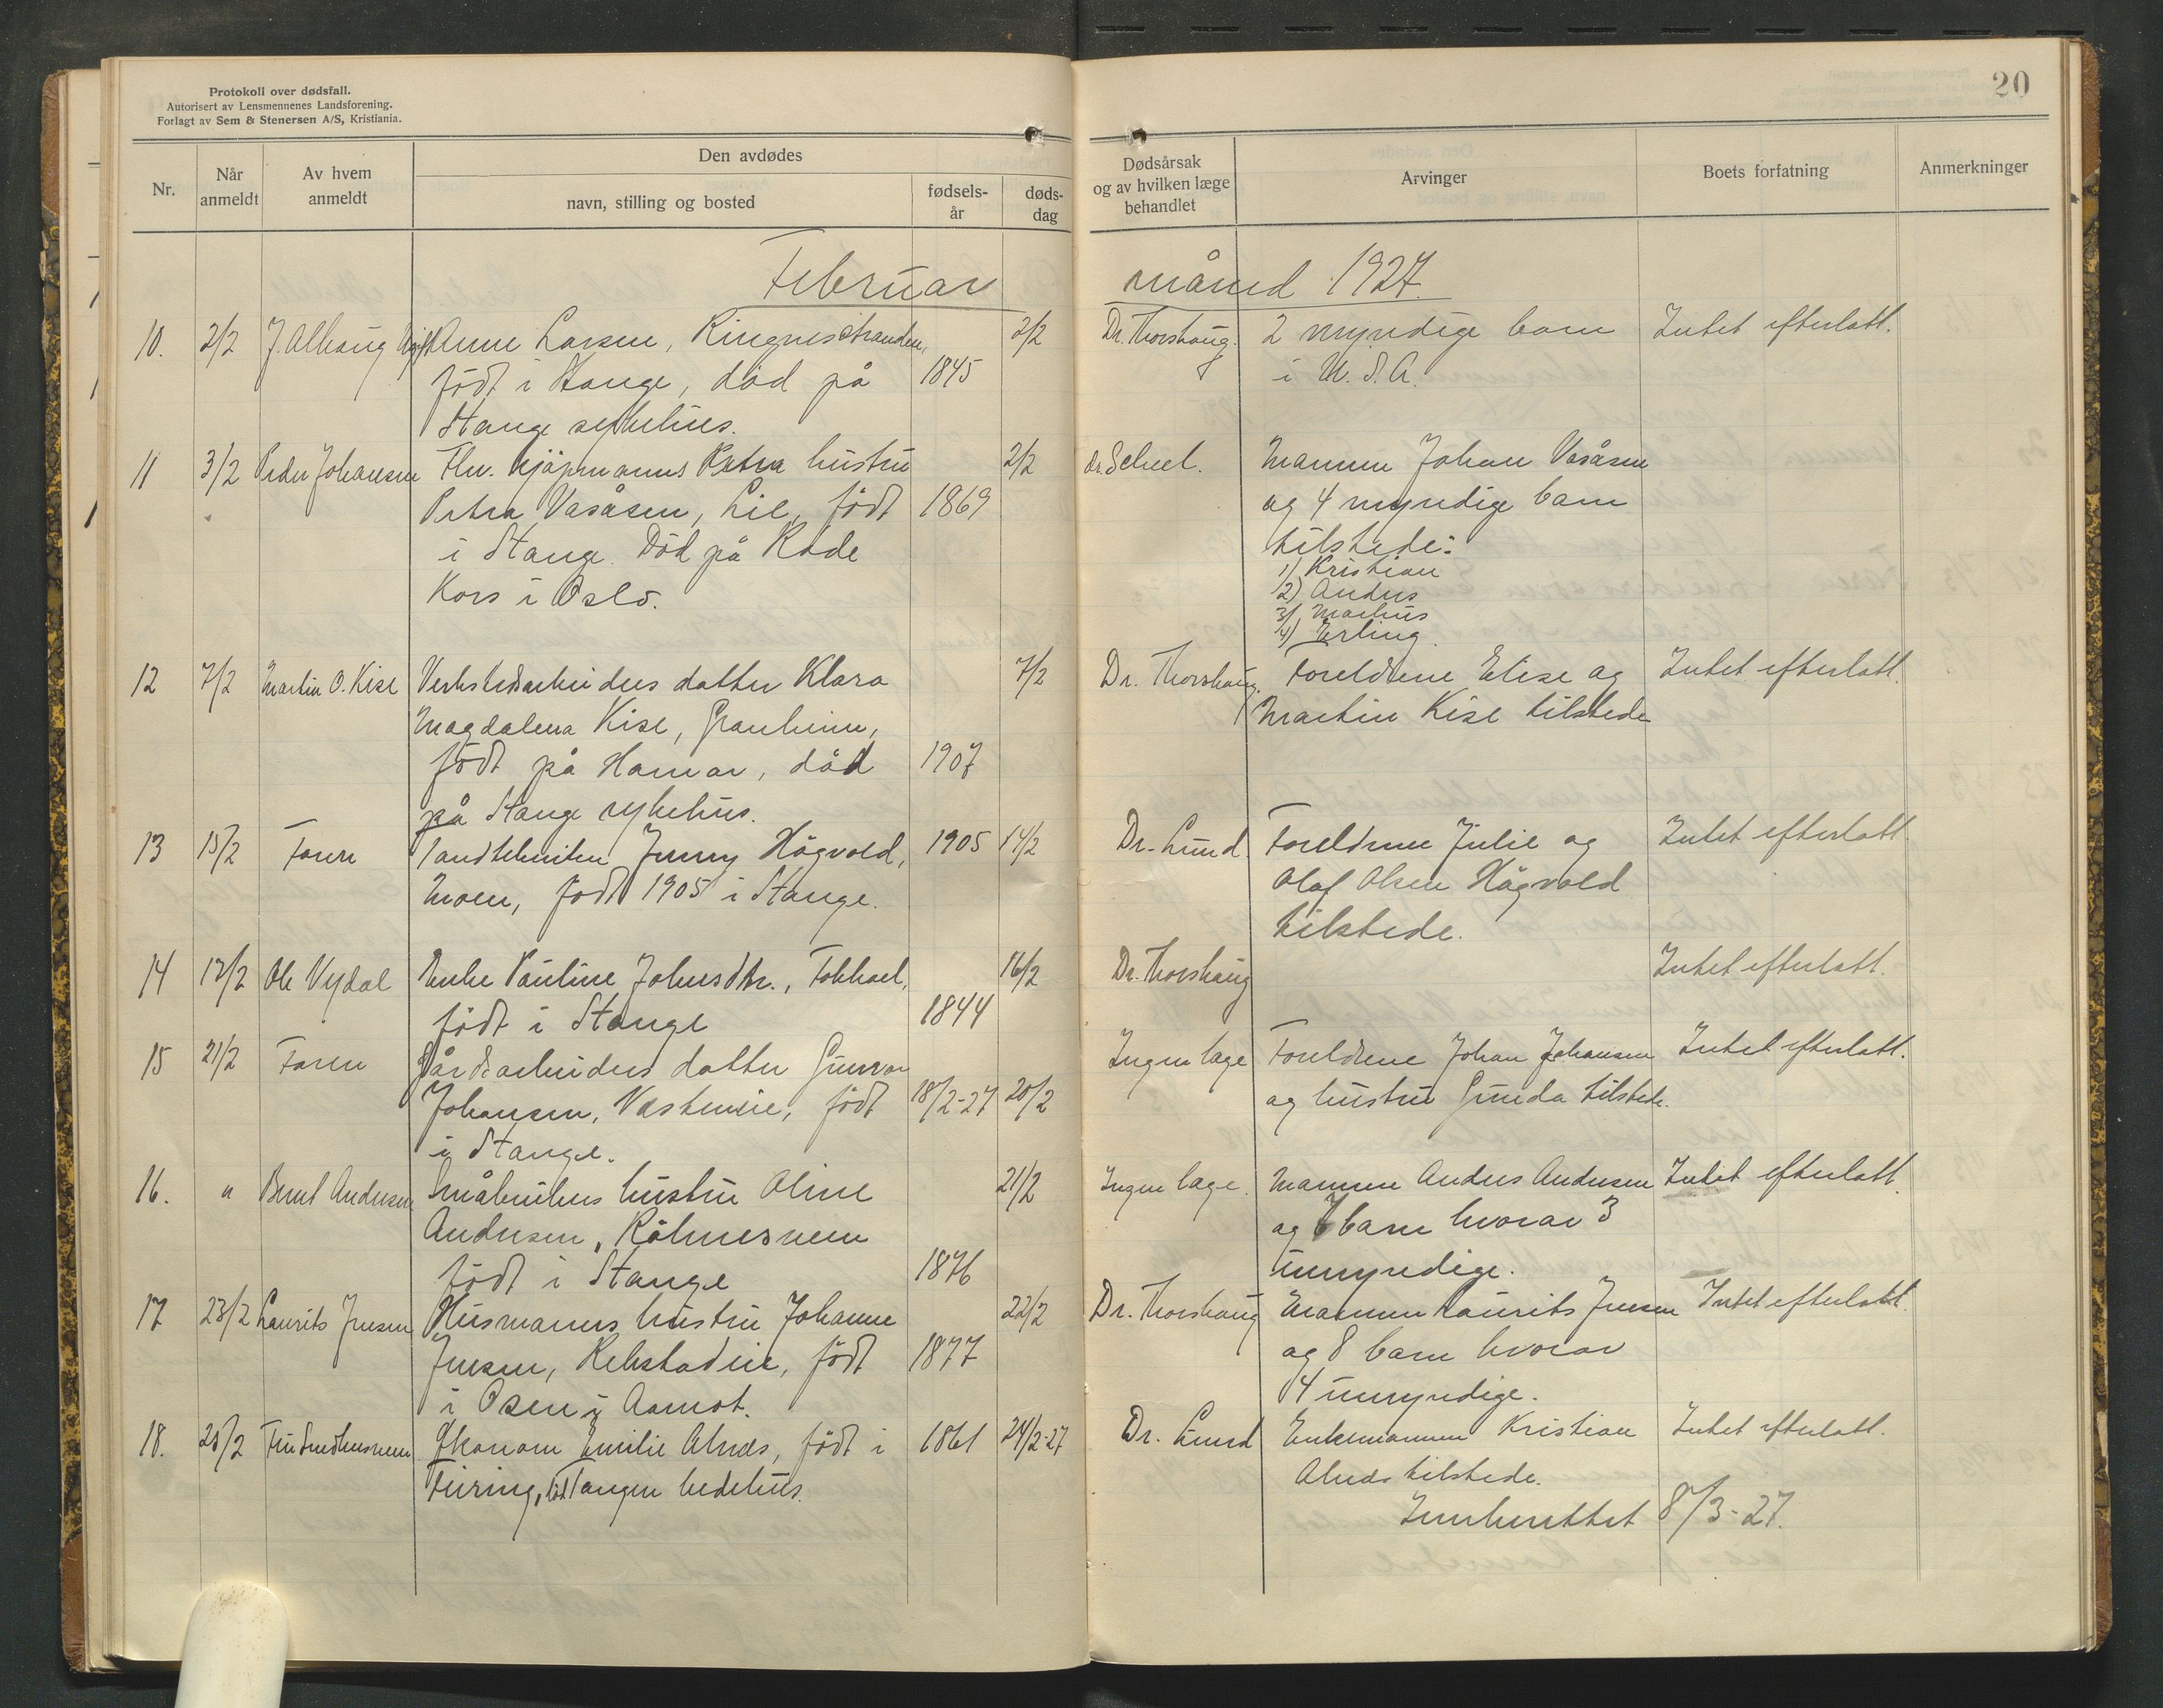 Protokoll over dødsfall.
Autorisert av Lensmennenes Landsforening.
Forlagt av Sem & Stenersen A/S, Kristiania.
20
Nr.
Når anmeldt
Av hvem anmeldt
Den avdødes
navn, stilling og bosted
fødsels-år
døds-dag
Dødsårsak og av hvilken læge behandlet
Arvinger
Boets forfatning
Anmerkninger
Februar måned 1927.
10. 2/2 J. Alhaug Anne Larsen, Ringnesstranden, 2/2 Dr. Thorshaug. 2 myndige barn Intet efterlatt.
født i Stange, död på 1845 i U.S.A.
Stange sykehus.
11 3/2 Peder Johansen Fhv. kjöpmanns Petra hustru 2/2 dr. Scheel. Mannen Johan Vasåsen
Petra Vasåsen, Lie, født 1869 og 4 myndige barn
i Stange. Död på Röde tilstede:
Kors i Oslo. 1) Kristian
2) Anders
3) Marhus
4) Erling.
12 7/2 Martin O. Kise Verkstedarbeiders datter Klara 7/2 Dr. Thorshaug. Foreldrene Elise og Intet efterlatt.
Magdalena Kise, Granheim, Martin Kise tilstede
født på Hamar, död 1907
på Stange sykehus.
13 15/2 Faren Tandtekniker Jenny Högvold, 1905 14/2 Dr. Lund. Foreldrene Julie og Intet efterlatt
Moen, født 1905 i Stange. Olaf Olsen Högvold
tilstede.
14 17/2 Ole Vydal Enke Pauline Johnsdtr., Tokhol, 16/2 Dr. Thorshaug Intet efterlatt.
født i Stange 1844
15 21/2 Faren Gårdsarbeiders datter Gunvor Ingen læge Foreldrene Johan Johansen Intet efterlatt.
Johansen, Vesteneie, født 18/2-27 20/2 og hustru Gunda tilstede.
i Stange.
16. " Bernt Andersen Småbrukers hustru Oline 21/2 Ingen læge. Mannen Anders Andersen Intet efterlatt.
Andersen, og barn hvorav 3
født i Stange 1876 umyndige.
17 23/2 Laurits Jensen Husmanns hustru Johanne 22/2 Dr. Thorshaug Mannen Laurits Jensen Intet efterlatt.
Jensen, Rekstadeie, født 1877 og 8 barn hvorav
i Osen i Aamot. 4 umyndige.
18. 25/2 Økonom Emilie Alnæs, født i 1861 24/2-27 Dr. Lund Enkemannen Kristian Intet efterlatt.
Feiring, Tangen bedehus. Alnæs tilstede.
Innberettet 8/3-27.